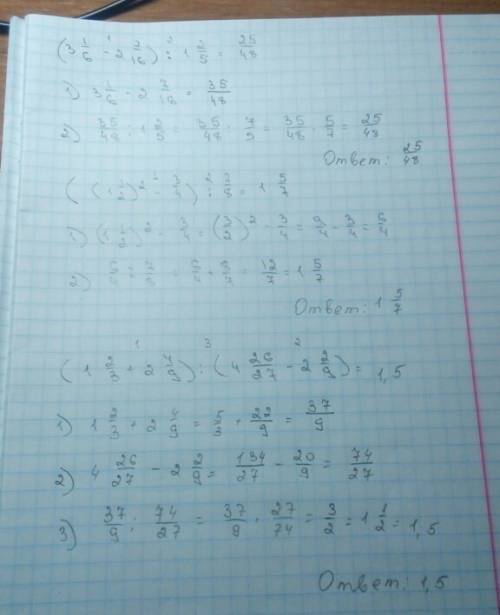 (3 1/6 - 2 3/16) : 1 2/5 = 25/48
1) 3 1/6 - 2 3/16 = 35/48
2) 35/48 : 1 2/5 = 35/48 : 7/5 = 35/48 · 5/7 = 25/48
Ответ: 25/48
1) (1 1/2)² - 3/4 = (3/2)² - 3/4 = 9/4 - 3/4 = 5/4
= 12/7 = 1 5/7
Ответ: 1 5/7
(1 2/3 + 2 4/9) : (4 26/27 - 2 2/9) = 1,5
1) 1 2/3 + 2 4/9 = 5/3 + 22/9 = 37/9
2) 4 26/27 - 2 2/9 = 134/27 - 20/9 = 74/27
3) 37/9 : 74/27 = 37/9 · 27/74 = 3/2 = 1 1/2 = 1,5
Ответ: 1,5